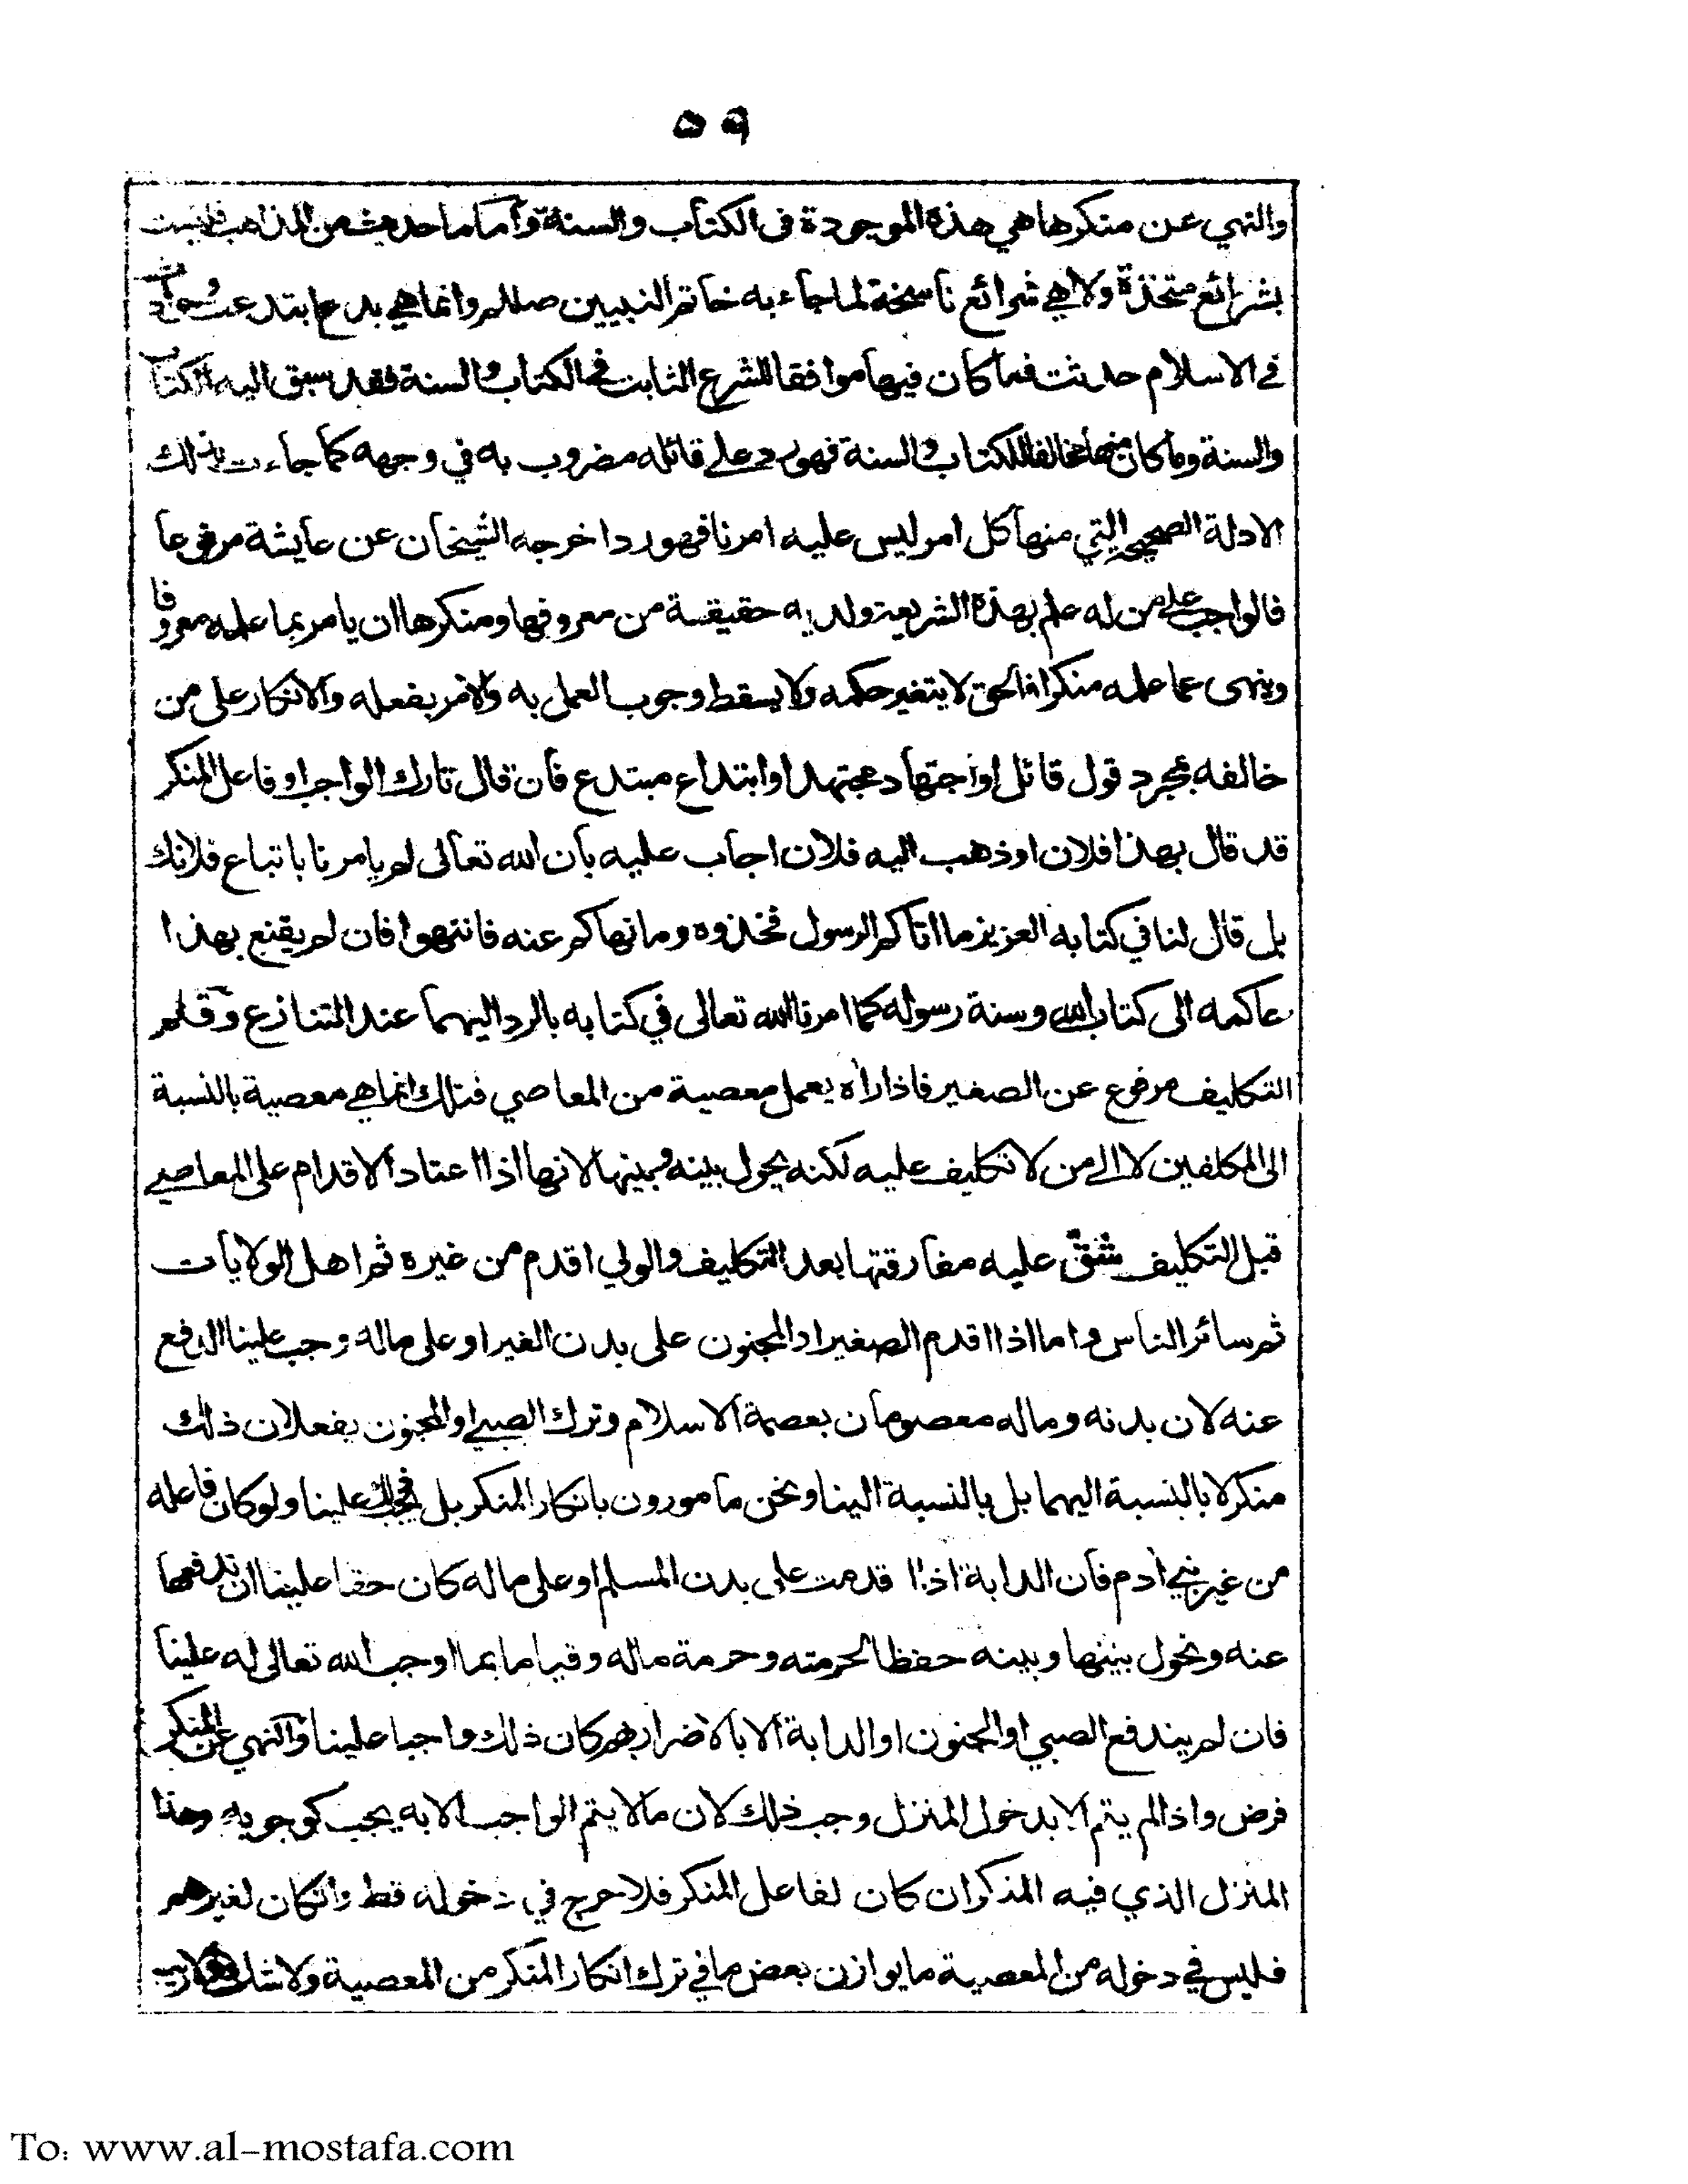 ٥٩
والنهي عن منكرها هي هذه الموجودة في الكتاب والسنة وأما ما حدث من المذاهب فليست
بشرائع متخذة ولا هي شرائع ناسخة لما جاء به خاتم النبيين صللم وانما هي بدع ابتدعت وحوادث
في الاسلام حدثت فما كان فيها موافقا للشرع الثابت في الكتاب والسنة فقد سبق اليه الكتاب
والسنة وما كان منها مخالفا للكتاب والسنة فهو رد على قائله مضروب به في وجهه كما جاءت بذلك
الادلة الصحيحة التي منها كل امر ليس عليه امرنا فهو رد اخرجه الشيخان عن عايشة مرفوعا
فالواجب على من له علم بهذه الشريعة ولديه حقيقة من معروفها ومنكرها ان يامر بما علمه معروفا
وينهى عما علمه منكرا فالحق لا يتغير حكمه ولا يسقط وجوب العمل به والامر بفعله والانكار على من
خالفه بمجرد قول قائل او اجتهاد مجتهد او ابتداع مبتدع فان قال تارك الواجب او فاعل المنكر
قد قال بهذا فلان او ذهب اليه فلان اجاب عليه بان الله تعالى لم يامرنا باتباع فلانك
بل قال لنا في كتابه العزيز ما اتاكم الرسول فخذوه وما نهاكم عنه فانتهوا فان لم يقنع بهذا
حاكمه الى كتاب الله وسنة رسوله كما امرنا الله تعالى في كتابه بالرد اليهما عند التنازع وقلم
التكليف مرفوع عن الصغير فاذا رأه يعمل معصية من المعاصي فتلك انما هي معصية بالنسبة
الى المكلفين لا الى من لا تكليف عليه لكنه يحول بينه وبينها لانها اذا اعتاد الاقدام على المعاصي
قبل التكليف شق عليه مفارقتها بعد التكليف والولي اقدم من غيره ثم اهل الولايات
ثم سائر الناس واما اذا اقدم الصغير او المجنون على بدن الغير او على ماله وجب علينا الدفع
عنه لان بدنه وماله معصومان بعصمة الاسلام وترك الصبي او المجنون يفعلان ذلك
منكر لا بالنسبة اليهما بل بالنسبة الينا ونحن مامورون بانكار المنكر بل يجب ذلك علينا ولو كان فاعله
من غير بني أدم فان الدابة اذا اقدمت على بدن المسلم او على ماله كان حقا علينا ان ندفعها
عنه ونحول بينها وبينه حفظا لحرمته وحرمة ماله وقياما بما اوجب الله تعالى له علينا
فان لم يندفع الصبي او المجنون او الدابة الا بالاضرار بهم كان ذلك واجبا علينا والنهي عن المنكر
فرض واذا لم يتم الا بدخول المنزل وجب ذلك لان ما لا يتم الواجب الا به يجب كوجوبه وهذا
المنزل الذي فيه المنكر ان كان لفاعل المنكر فلا حرج في دخوله قط وان كان لغيرهم
فليس في دخوله من المعصية ما يوازن بعض ما في ترك انكار المنكر من المعصية ولا شك ولا ريب
To: www.al-mostafa.com